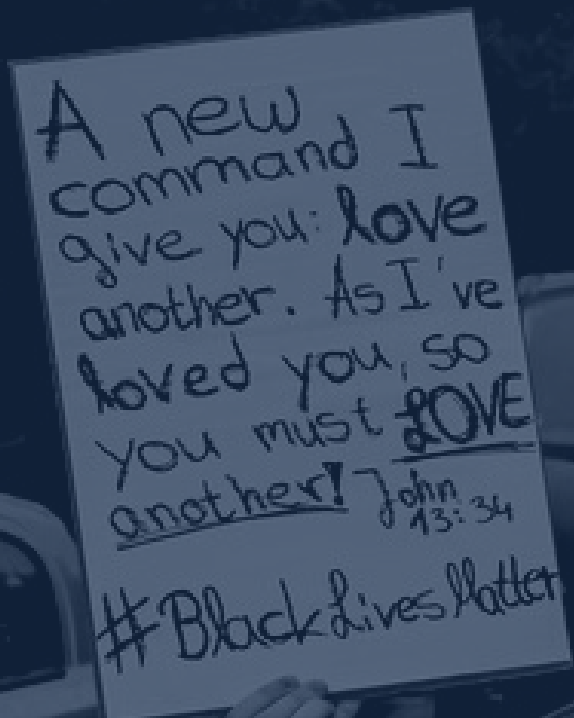 A new
command I
give you: love
another. As I've
loved you, so
you must LOVE
another! John
13:34
#BlackLivesMatter